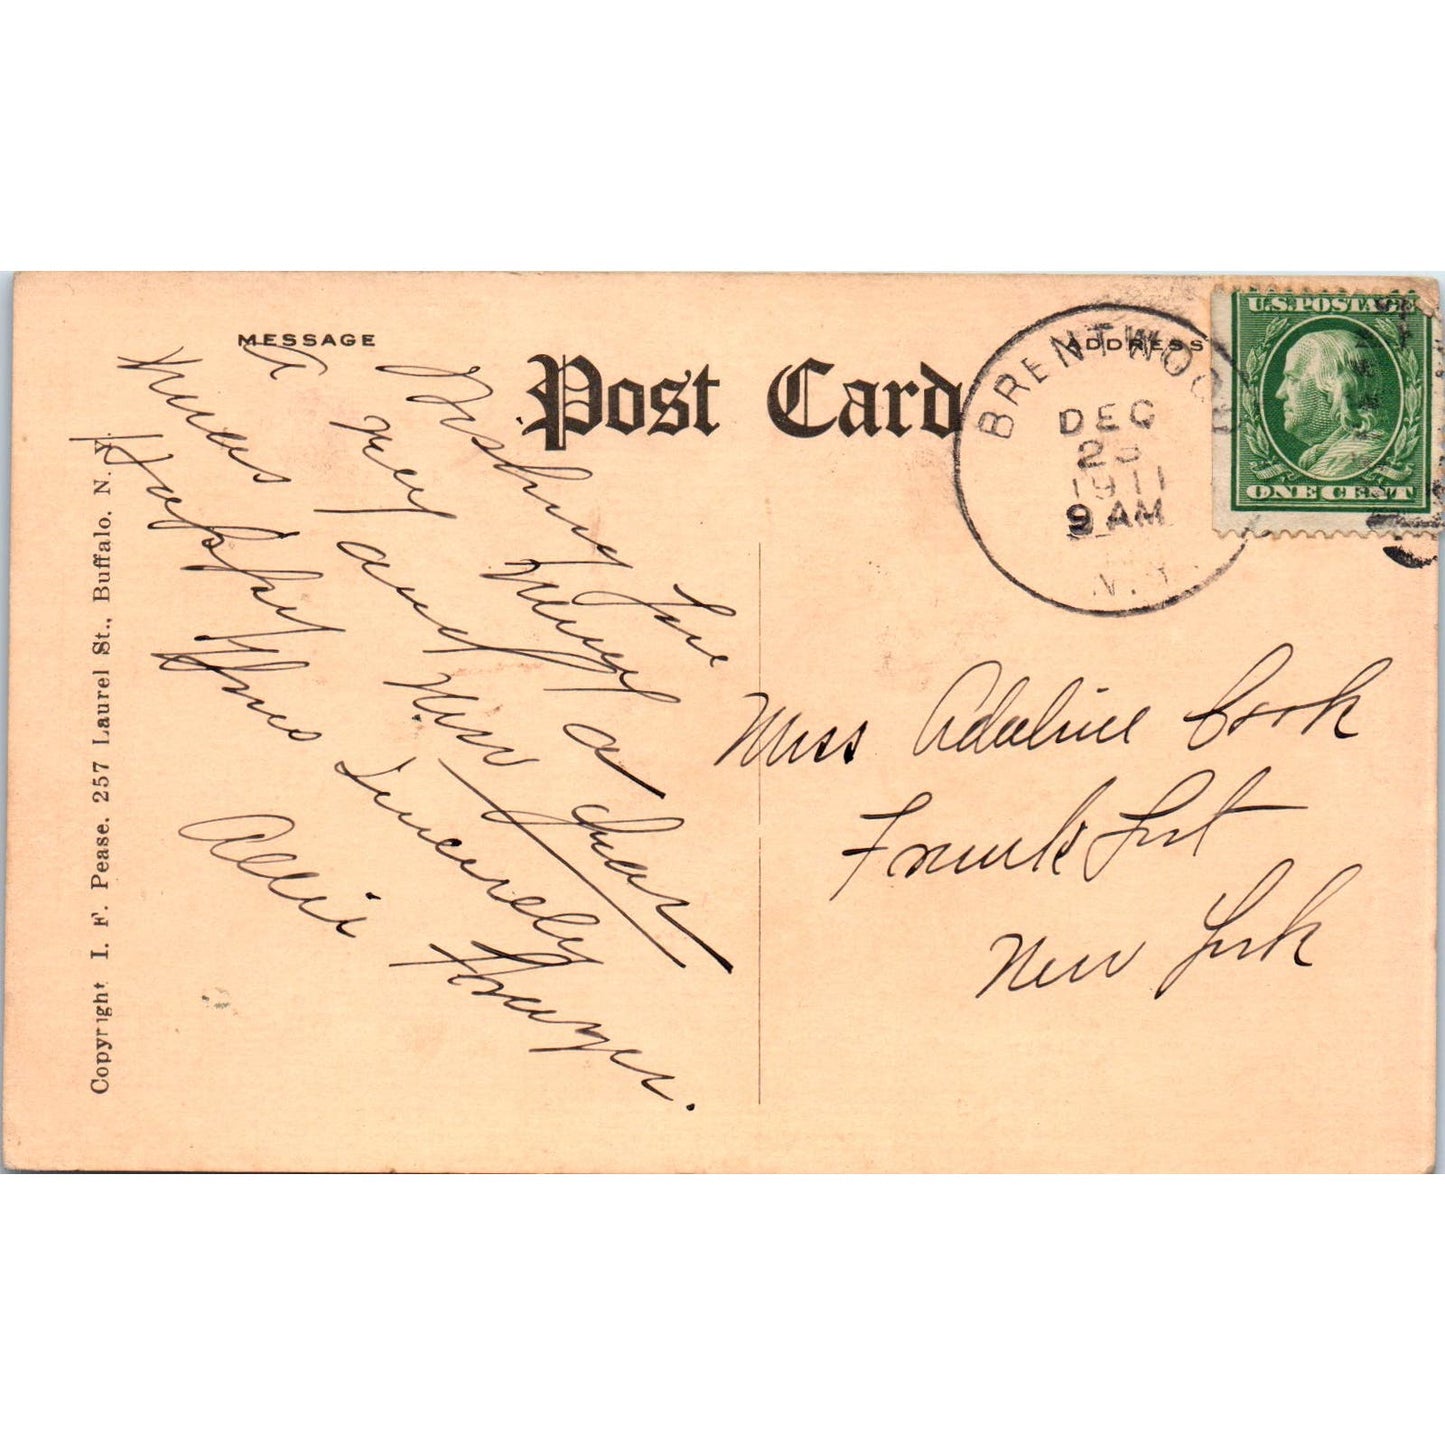 MESSAGE
Post Card
ADDRESS
U.S. POSTAGE
ONE CENT
BRENTWOOD
DEC
23
1911
9 AM
N.Y.
Wishing you
a very Merry
Xmas and a
Happy New Year
Yours Sincerely
Allie
Miss Adaline Cook
Frankfort
New York
Copyright I. F. Pease. 257 Laurel St., Buffalo. N. Y.